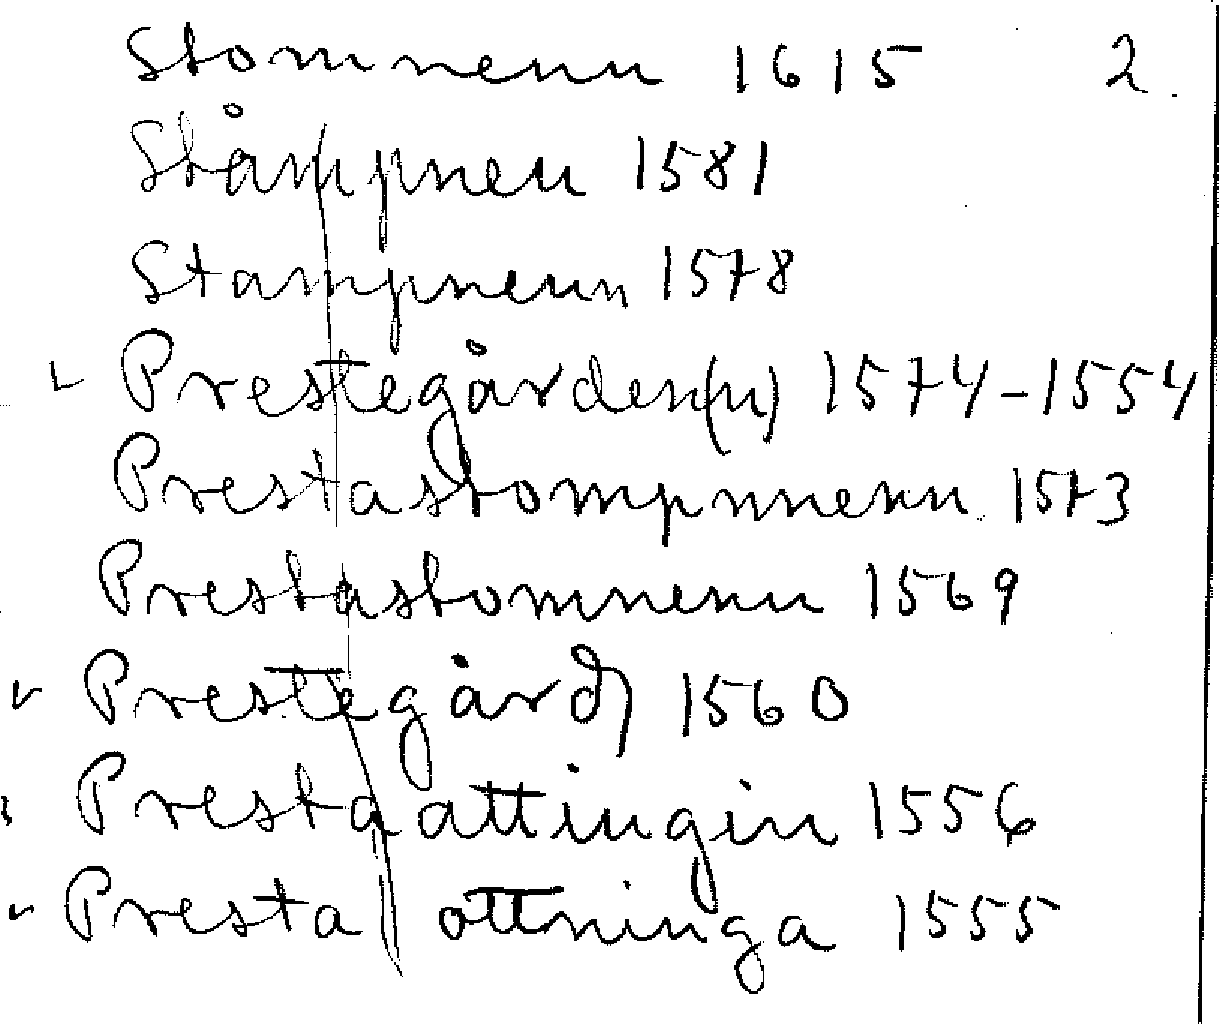 Stomnenn 1615 2.
Ståmpnen 1581
Stampnenn 1578
Prestegården(n) 1574-1554
Prestastompnnenn 1573
Prestastomnenn 1569
Prestegård 1560
Presta attingin 1556
Presta ottninga 1555